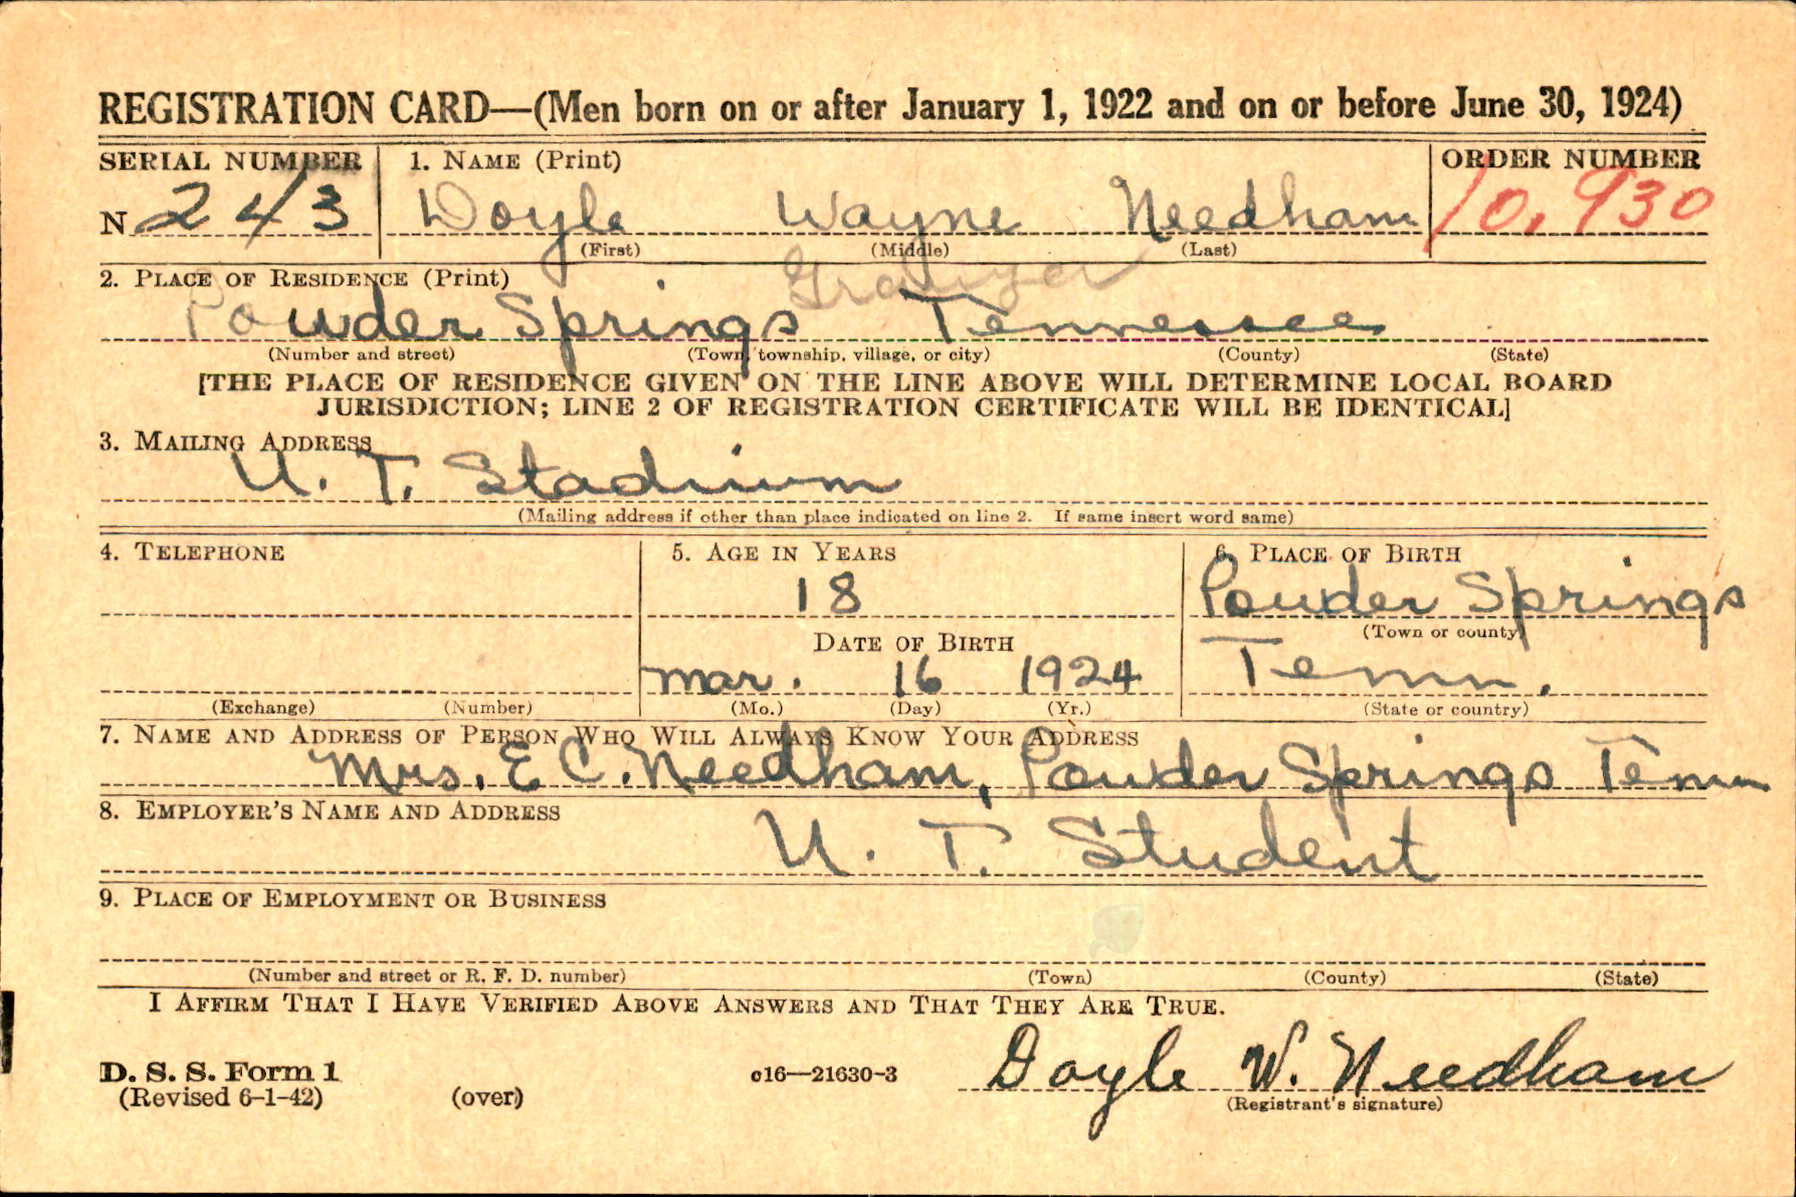 REGISTRATION CARD—(Men born on or after January 1, 1922 and on or before June 30, 1924)
SERIAL NUMBER 1. NAME (Print) ORDER NUMBER
N 243 Doyle Wayne Needham 10,930
(First) (Middle) (Last)
2. PLACE OF RESIDENCE (Print) Grainger
Powder Springs Tennessee
(Number and street) (Town, township, village, or city) (County) (State)
[THE PLACE OF RESIDENCE GIVEN ON THE LINE ABOVE WILL DETERMINE LOCAL BOARD
JURISDICTION; LINE 2 OF REGISTRATION CERTIFICATE WILL BE IDENTICAL]
3. MAILING ADDRESS
U. T. Stadium
(Mailing address if other than place indicated on line 2. If same insert word same)
4. TELEPHONE 5. AGE IN YEARS 6. PLACE OF BIRTH
18 Powder Springs
(Town or county)
DATE OF BIRTH
Mar. 16 1924 Tenn.
(Exchange) (Number) (Mo.) (Day) (Yr.) (State or country)
7. NAME AND ADDRESS OF PERSON WHO WILL ALWAYS KNOW YOUR ADDRESS
Mrs. E C. Needham, Powder Springs Tenn
8. EMPLOYER'S NAME AND ADDRESS
U. T. Student
9. PLACE OF EMPLOYMENT OR BUSINESS
(Number and street or R. F. D. number) (Town) (County) (State)
I AFFIRM THAT I HAVE VERIFIED ABOVE ANSWERS AND THAT THEY ARE TRUE.
D. S. S. Form 1 c16—21630-3 Doyle W. Needham
(Revised 6-1-42) (over) (Registrant's signature)